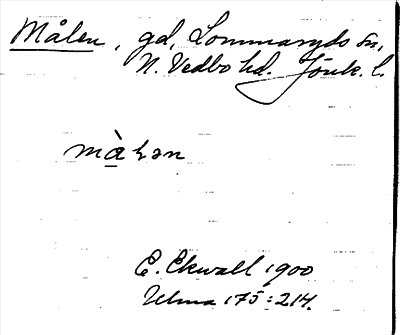 Målen, gd, Lommaryds sn,
N. Vedbo hd. Jönk. l.
mà̲ɽən
E. Ekwall 1900
Ulma 175:214.